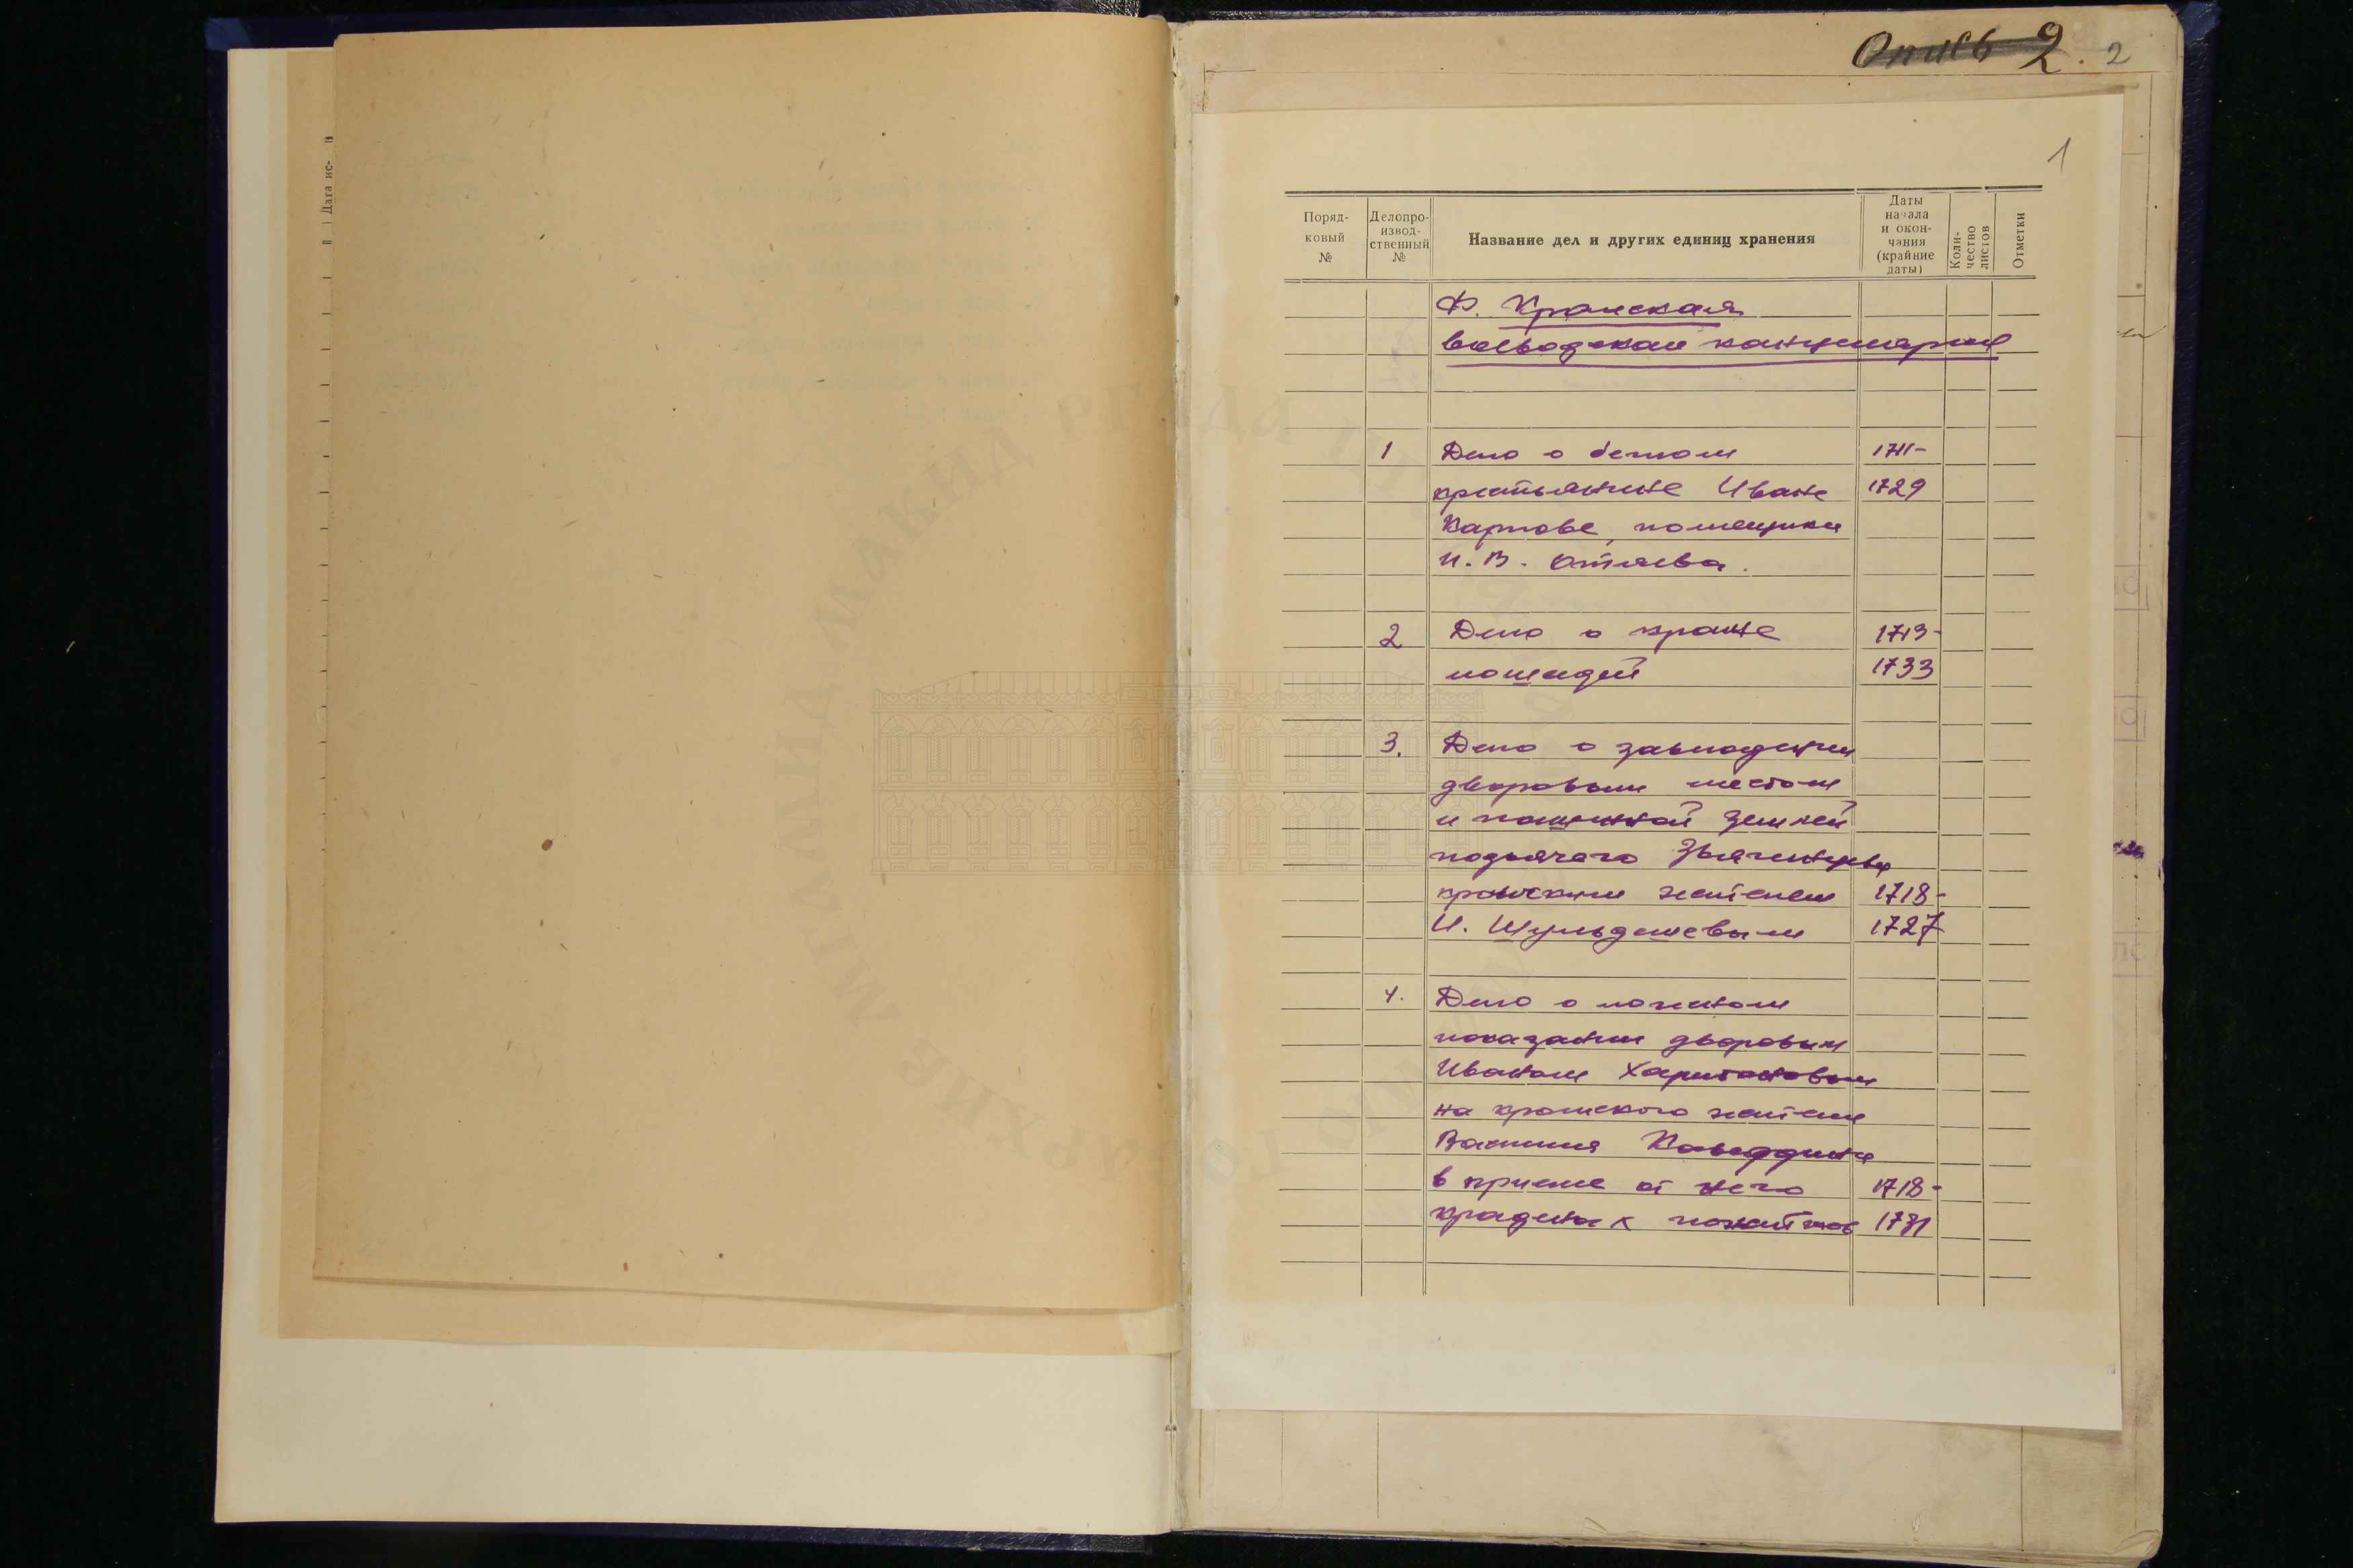 Опись 2. 2
1
Поряд-
ковый
№
Делопро-
извод-
ственный
№
Название дел и других единиц хранения
Даты
начала
и окон-
чания
(крайние
даты)
Коли-
чество
листов
Отметки
Ф. Кромская
воеводская канцелярия
1 Дело о беглом 1711-
крестьянине Иване 1729
Карпове, помещика
И. В. Отяева.
2 Дело о краже 1713-
лошадей 1733
3. Дело о завладении
дворовым местом
и пашенной землей
подьячего Звягинцева
кромским жителем 1718-
И. Шульдешевым 1727
4. Дело о ложном
показании дворовым
Иваном Харитоновым
на кромского жителя
Василия
в приеме от него 1718-
краденых пожитков 1731
Дата ис-